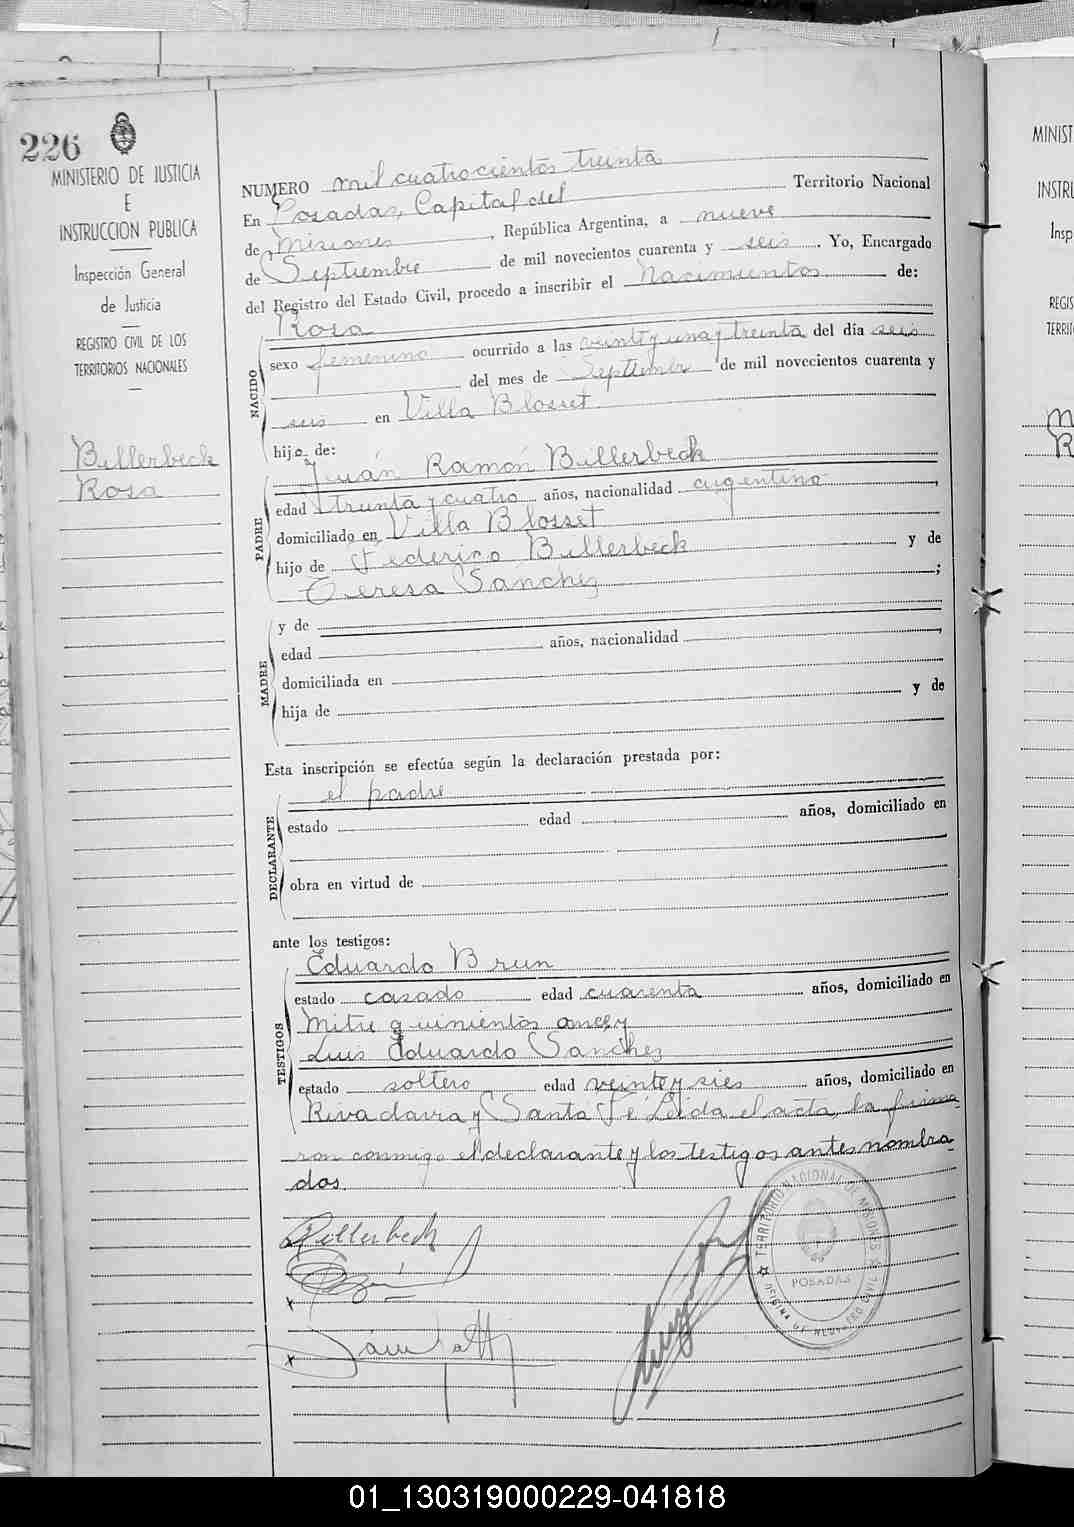 226
MINISTERIO DE JUSTICIA
E
INSTRUCCION PUBLICA
Inspección General
de Justicia
REGISTRO CIVIL DE LOS
TERRITORIOS NACIONALES
Billerbeck
Rosa
NUMERO mil cuatrocientos treinta
En Posadas, Capital del Territorio Nacional
de Misiones, República Argentina, a nueve
de Septiembre de mil novecientos cuarenta y seis. Yo, Encargado
del Registro del Estado Civil, procedo a inscribir el Nacimiento de:
Rosa
NACIDO
sexo femenino ocurrido a las veinte y una y treinta del día seis
del mes de Septiembre de mil novecientos cuarenta y
seis en Villa Blosset
hija de:
Juán Ramón Billerbeck
PADRE
edad treinta y cuatro años, nacionalidad argentino,
domiciliado en Villa Blosset
hijo de Federico Billerbeck y de
Teresa Sanchez;
MADRE
y de
edad años, nacionalidad,
domiciliada en
hija de y de
Esta inscripción se efectúa según la declaración prestada por:
el padre
DECLARANTE
estado edad años, domiciliado en
obra en virtud de
ante los testigos:
Eduardo Brun
TESTIGOS
estado casado edad cuarenta años, domiciliado en
Mitre quinientos once y
Luis Eduardo Sanchez
estado soltero edad veinte y sies años, domiciliado en
Rivadavia y Santa Fé Leida el acta, la firma
ron conmigo el declarante y los testigos antes nombra
dos.
Billerbeck
TERRITORIO NACIONAL DE MISIONES
POSADAS
OFICINA DE REGISTRO CIVIL
MINIST
INSTRU
Insp
REGIS
TERRIT
01_130319000229-041818